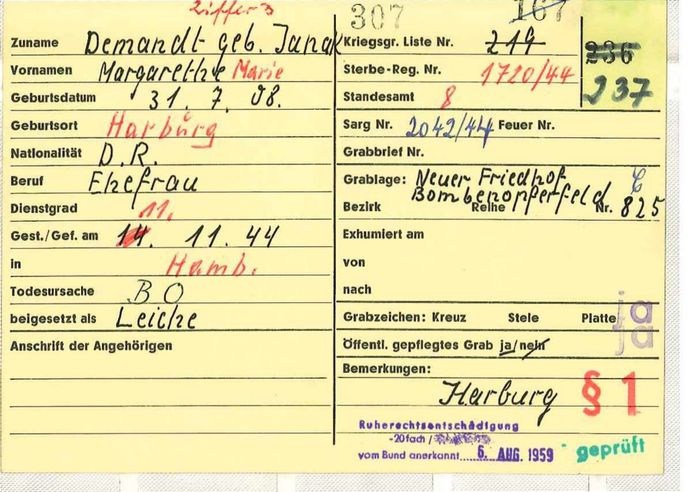 Ziffer 3
307
167
Zuname Demandt geb. Janak
Vornamen Margarethe Marie
Geburtsdatum 31. 7. 08.
Geburtsort Harburg
Nationalität D.R.
Beruf Ehefrau
Dienstgrad 11.
Gest./Gef. am 14. 11. 44
in Hamb.
Todesursache BO
beigesetzt als Leiche
Anschrift der Angehörigen
Kriegsgr. Liste Nr. 219
236
237
Sterbe-Reg. Nr. 1720/44
Standesamt 8
Sarg Nr. 2042/44 Feuer Nr.
Grabbrief Nr.
Grablage: Neuer Friedhof
Bombenopferfeld
Bezirk Reihe Nr. 825
Exhumiert am
von
nach
Grabzeichen: Kreuz Stele Platte ja
Öffentl. gepflegtes Grab ja/nein ja
Bemerkungen:
Harburg § 1
Ruherechtsentschädigung
-20fach /
vom Bund anerkannt 6. AUG. 1959
geprüft